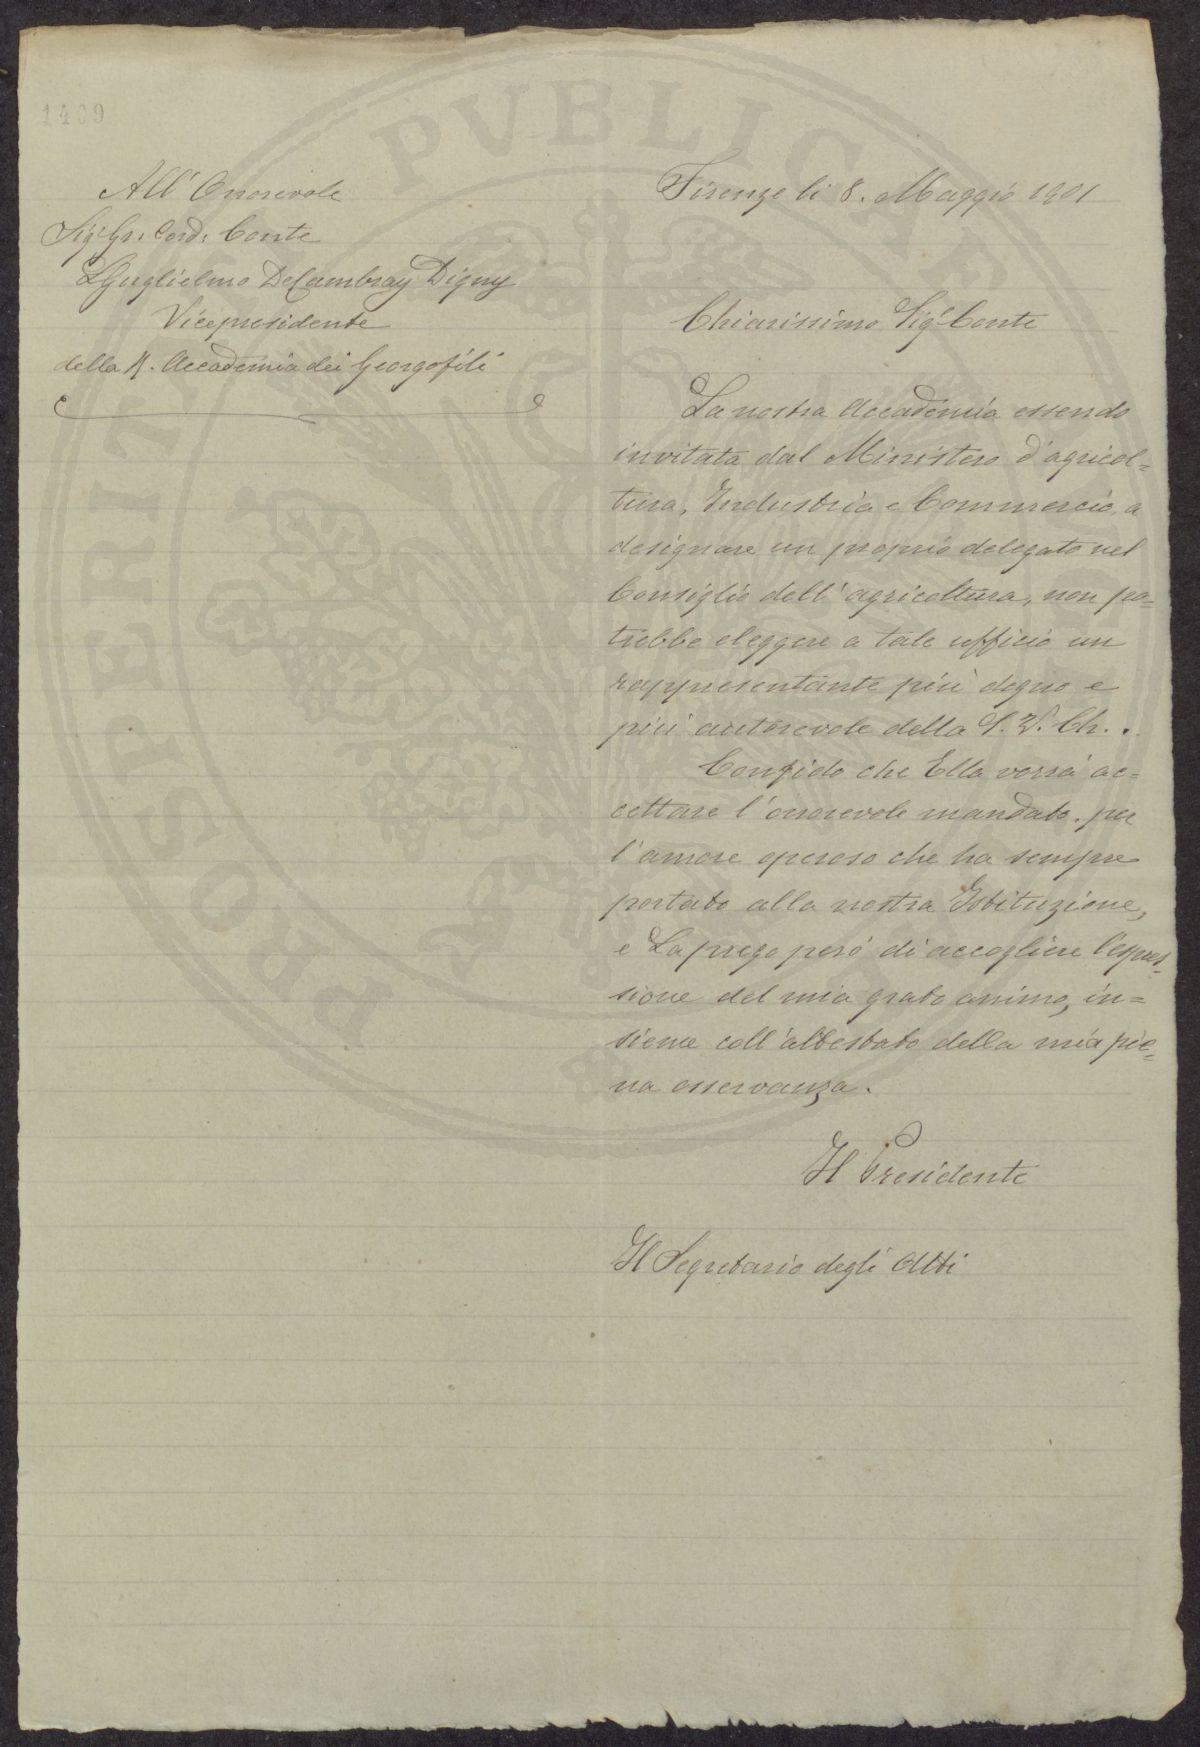 1409
All' Onorevole
Sigr Gr: Cord: Conte
Guglielmo De Cambray Digny
Vicepresidente
della R. Accademia dei Georgofili
Firenze li 8. Maggio 1901
Chiarissimo Sigr Conte
La nostra Accademia essendo
invitata dal Ministero d'agricol=
tura, Industria e Commercio, a
designare un proprio delegato nel
Consiglio dell'agricoltura, non po=
trebbe eleggere a tale ufficio un
rappresentante più degno e
più autorevole della S. V. Ch. .
Confido che Ella vorrà ac=
cettare l'onorevole mandato, per
l'amore operoso che ha sempre
portato alla nostra Istituzione,
e La prego però di accogliere l'espres=
sione del mia grato animo, in=
sieme coll'attestato della mia pie=
na osservanza.
Il Presidente
Il Segretario degli Atti
PVBLICAE
PROSPERITATI